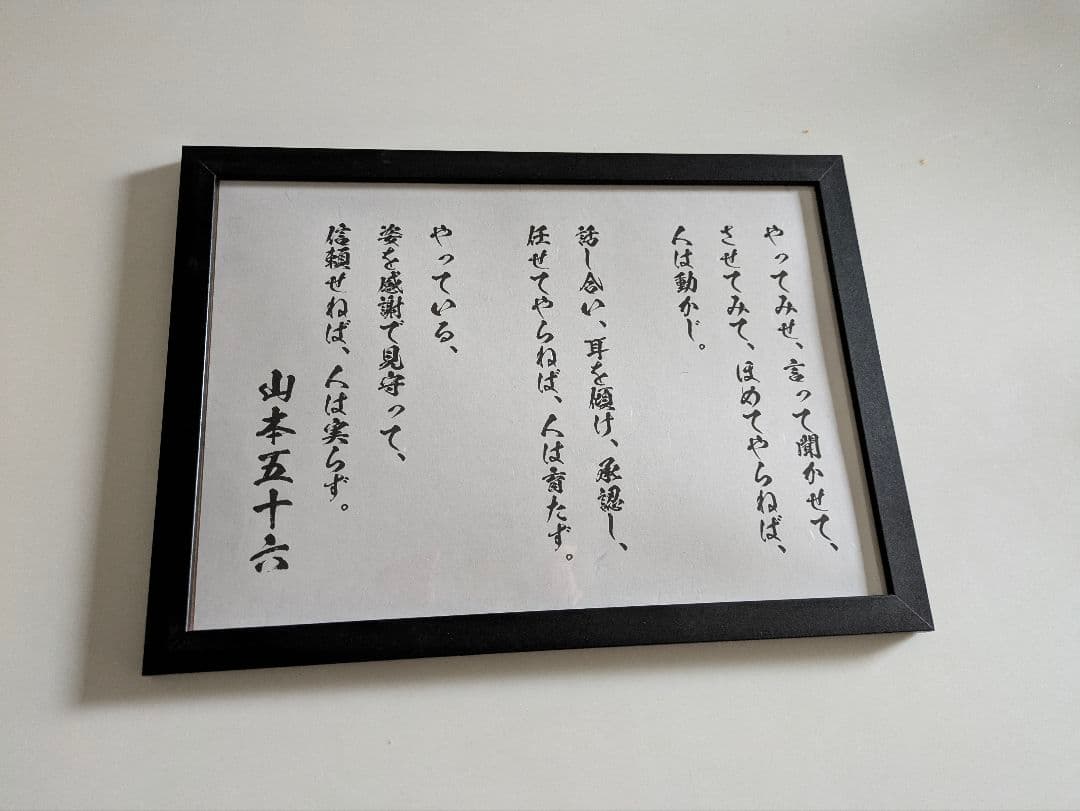 やってみせ、言って聞かせて、
させてみて、ほめてやらねば、
人は動かじ。
話し合い、耳を傾け、承認し、
任せてやらねば、人は育たず。
やっている、
姿を感謝で見守って、
信頼せねば、人は実らず。
山本五十六